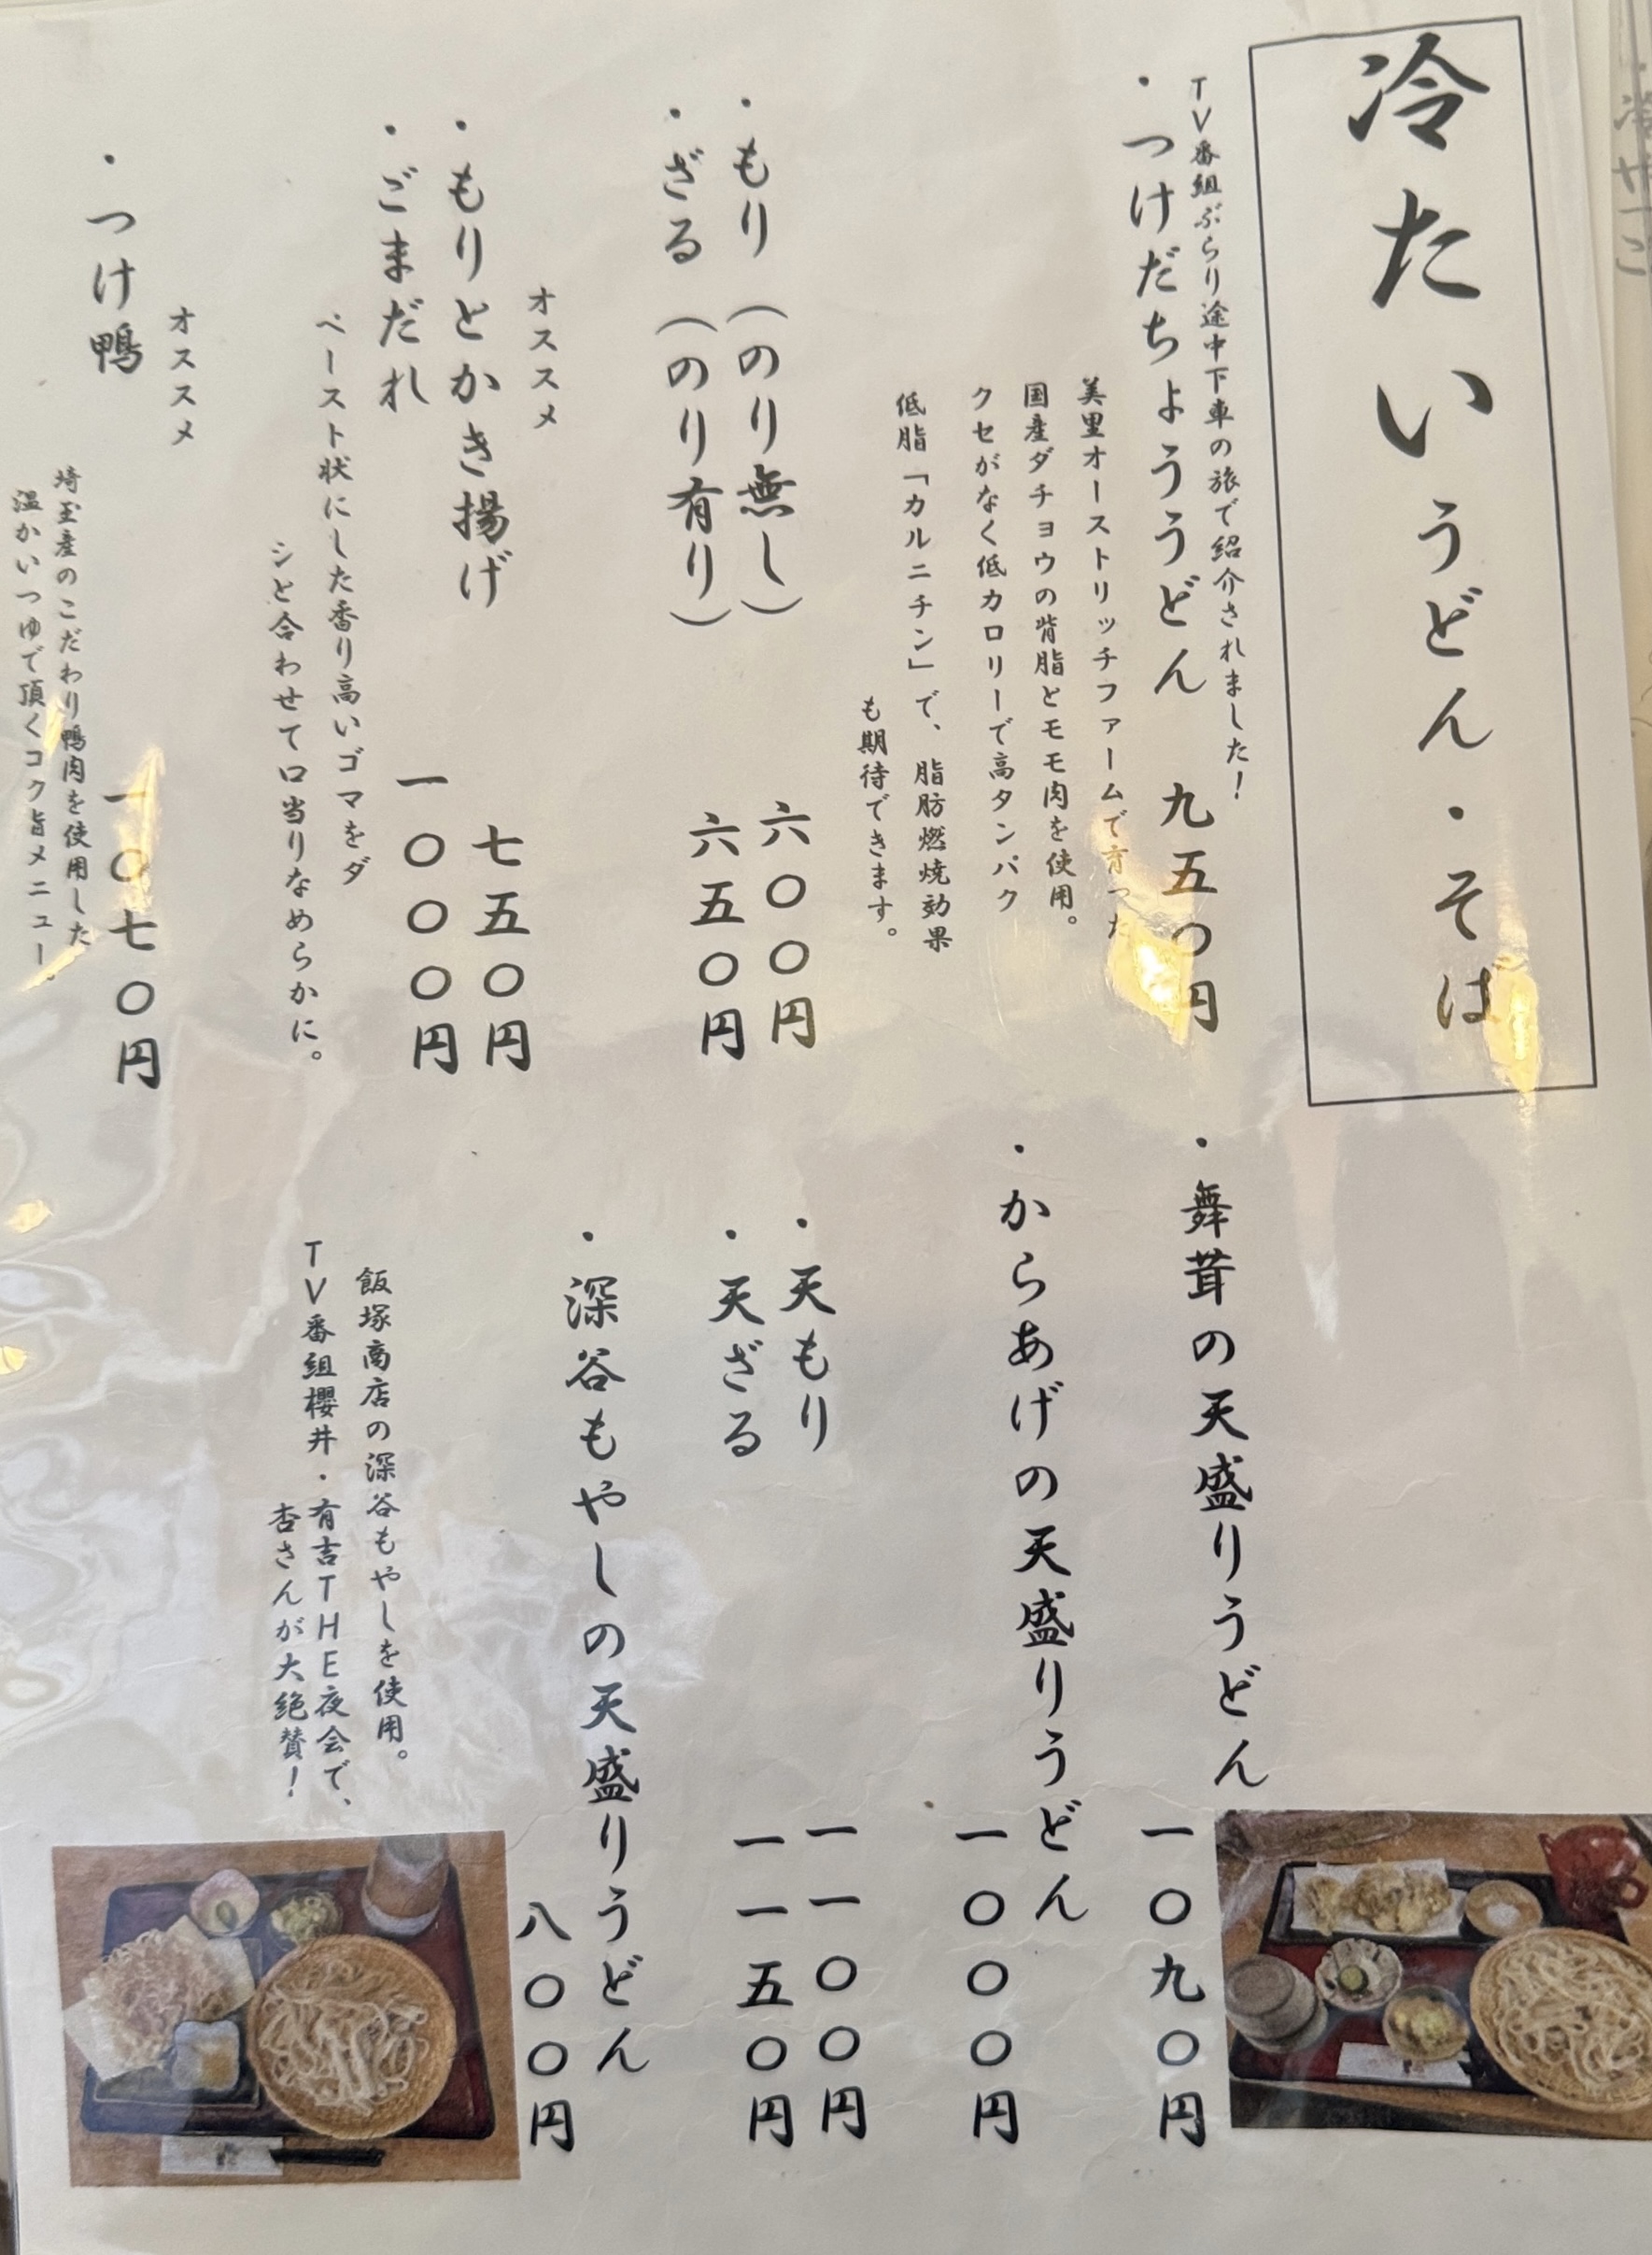 冷たいうどん・そば
TV番組ぶらり途中下車の旅で紹介されました！
・つけだちょううどん 九五〇円
美里オーストリッチファームで育った
国産ダチョウの背脂とモモ肉を使用。
クセがなく低カロリーで高タンパク
低脂「カルニチン」で、脂肪燃焼効果
も期待できます。
・もり（のり無し） 六〇〇円
・ざる（のり有り） 六五〇円
オススメ
・もりとかき揚げ 七五〇円
・ごまだれ 一〇〇〇円
ペースト状にした香り高いゴマをダ
シと合わせて口当りなめらかに。
オススメ
・つけ鴨 一〇七〇円
埼玉産のこだわり鴨肉を使用した
温かいつゆで頂くコク旨メニュー。
・舞茸の天盛りうどん 一〇九〇円
・からあげの天盛りうどん 一〇〇〇円
・天もり 一一〇〇円
・天ざる 一一五〇円
・深谷もやしの天盛りうどん 八〇〇円
飯塚商店の深谷もやしを使用。
TV番組櫻井・有吉THE夜会で、
杏さんが大絶賛！